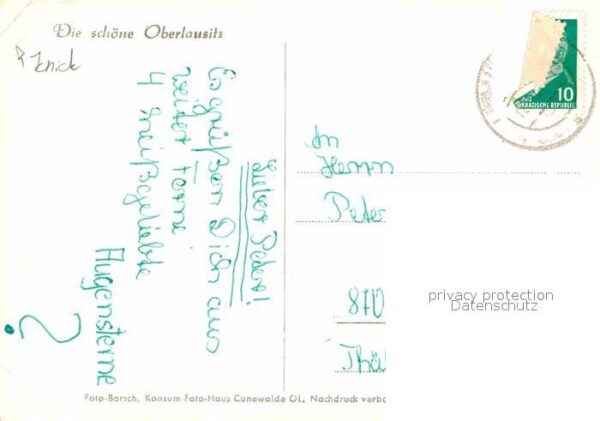 Die schöne Oberlausitz
Knick
Lieber Peter!
Es grüßen Dich aus
weiter Ferne
4 heißgeliebte
Augensterne
?
10
KRATISCHE REPUBLIK
An
Herrn
Peter
Foto-Borsch, Konsum Foto-Haus Cunewalde OL., Nachdruck verbo
privacy protection
Datenschutz